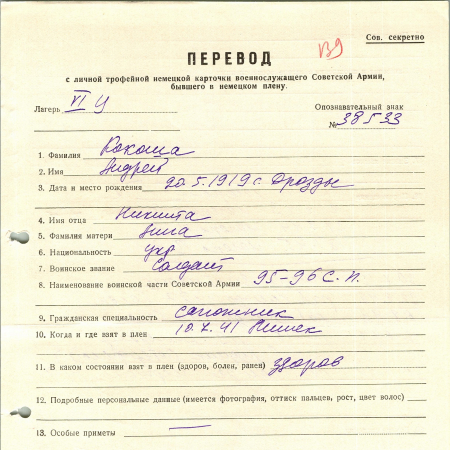 Сов. секретно
В9
ПЕРЕВОД
с личной трофейной немецкой карточки военнослужащего Советской Армии,
бывшего в немецком плену.
Лагерь VI
Опознавательный знак
№ 38533
1. Фамилия Кокоша
2. Имя Андрей
3. Дата и место рождения 20.5.1919 г. Дрозды
4. Имя отца Никита
5. Фамилия матери Нина
6. Национальность укр
7. Воинское звание Солдат
8. Наименование воинской части Советской Армии 95-96 с.п.
9. Гражданская специальность сапожник
10. Когда и где взят в плен 10.7.41
11. В каком состоянии взят в плен (здоров, болен, ранен) здоров
12. Подробные персональные данные (имеется фотография, оттиск пальцев, рост, цвет волос)
13. Особые приметы —